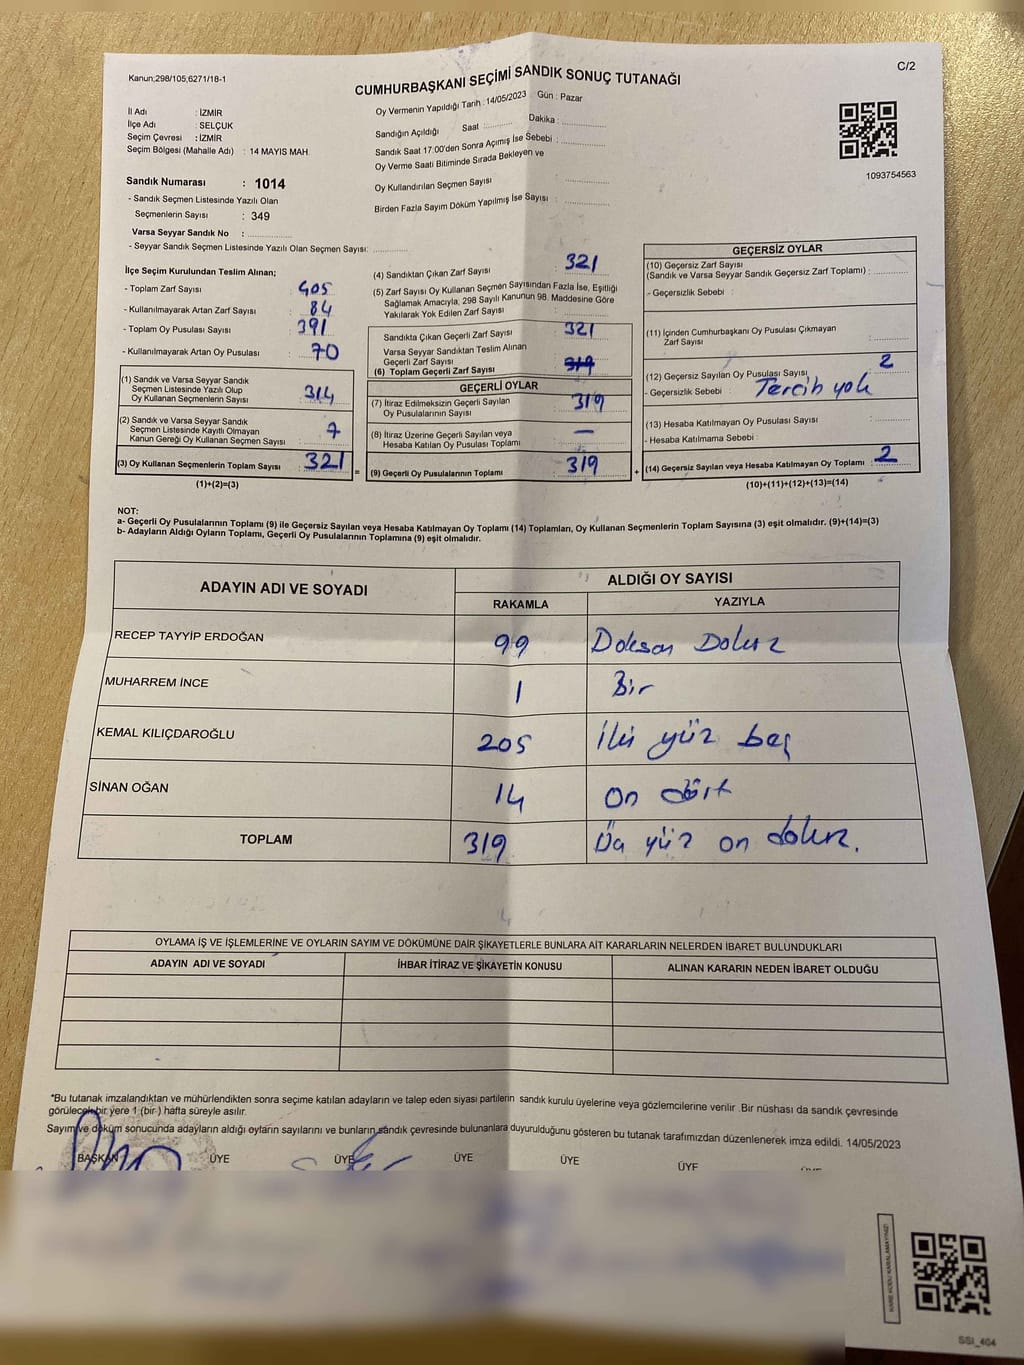 Kanun;298/105;6271/18-1
C/2
CUMHURBAŞKANI SEÇİMİ SANDIK SONUÇ TUTANAĞI
İl Adı : İZMİR
İlçe Adı : SELÇUK
Seçim Çevresi : İZMİR
Seçim Bölgesi (Mahalle Adı) : 14 MAYIS MAH.
Sandık Numarası : 1014
- Sandık Seçmen Listesinde Yazılı Olan
Seçmenlerin Sayısı : 349
Varsa Seyyar Sandık No :
- Seyyar Sandık Seçmen Listesinde Yazılı Olan Seçmen Sayısı:
Oy Vermenin Yapıldığı Tarih : 14/05/2023 Gün : Pazar
Sandığın Açıldığı Saat : Dakika :
Sandık Saat 17:00'den Sonra Açımış İse Sebebi :
Oy Verme Saati Bitiminde Sırada Bekleyen ve
Oy Kullandırılan Seçmen Sayısı :
Birden Fazla Sayım Döküm Yapılmış İse Sayısı :
1093754563
İlçe Seçim Kurulundan Teslim Alınan;
- Toplam Zarf Sayısı : 405
- Kullanılmayarak Artan Zarf Sayısı : 84
- Toplam Oy Pusulası Sayısı : 391
- Kullanılmayarak Artan Oy Pusulası : 70
(1) Sandık ve Varsa Seyyar Sandık
Seçmen Listesinde Yazılı Olup
Oy Kullanan Seçmenlerin Sayısı : 314
(2) Sandık ve Varsa Seyyar Sandık
Seçmen Listesinde Kayıtlı Olmayan
Kanun Gereği Oy Kullanan Seçmen Sayısı : 7
(3) Oy Kullanan Seçmenlerin Toplam Sayısı : 321
(1)+(2)=(3)
(4) Sandıktan Çıkan Zarf Sayısı : 321
(5) Zarf Sayısı Oy Kullanan Seçmen Sayısından Fazla İse, Eşitliği
Sağlamak Amacıyla; 298 Sayılı Kanunun 98. Maddesine Göre
Yakılarak Yok Edilen Zarf Sayısı :
Sandıkta Çıkan Geçerli Zarf Sayısı : 321
Varsa Seyyar Sandıktan Teslim Alınan
Geçerli Zarf Sayısı :
(6) Toplam Geçerli Zarf Sayısı : 319
GEÇERLİ OYLAR
(7) İtiraz Edilmeksizin Geçerli Sayılan
Oy Pusulalarının Sayısı : 319
(8) İtiraz Üzerine Geçerli Sayılan veya
Hesaba Katılan Oy Pusulası Toplamı : —
= (9) Geçerli Oy Pusulalarının Toplamı : 319
GEÇERSİZ OYLAR
(10) Geçersiz Zarf Sayısı
(Sandık ve Varsa Seyyar Sandık Geçersiz Zarf Toplamı) :
- Geçersizlik Sebebi :
(11) İçinden Cumhurbaşkanı Oy Pusulası Çıkmayan
Zarf Sayısı :
(12) Geçersiz Sayılan Oy Pusulası Sayısı : 2
- Geçersizlik Sebebi : Tercih yok
(13) Hesaba Katılmayan Oy Pusulası Sayısı :
- Hesaba Katılmama Sebebi :
+ (14) Geçersiz Sayılan veya Hesaba Katılmayan Oy Toplamı : 2
(10)+(11)+(12)+(13)=(14)
NOT:
a- Geçerli Oy Pusulalarının Toplamı (9) ile Geçersiz Sayılan veya Hesaba Katılmayan Oy Toplamı (14) Toplamları, Oy Kullanan Seçmenlerin Toplam Sayısına (3) eşit olmalıdır. (9)+(14)=(3)
b- Adayların Aldığı Oyların Toplamı, Geçerli Oy Pusulalarının Toplamına (9) eşit olmalıdır.
ADAYIN ADI VE SOYADI ALDIĞI OY SAYISI
RAKAMLA YAZIYLA
RECEP TAYYİP ERDOĞAN 99 Doksan Dokuz
MUHARREM İNCE 1 Bir
KEMAL KILIÇDAROĞLU 205 İki yüz beş
SİNAN OĞAN 14 On dört
TOPLAM 319 Üç yüz on dokuz.
OYLAMA İŞ VE İŞLEMLERİNE VE OYLARIN SAYIM VE DÖKÜMÜNE DAİR ŞİKAYETLERLE BUNLARA AİT KARARLARIN NELERDEN İBARET BULUNDUKLARI
ADAYIN ADI VE SOYADI İHBAR İTİRAZ VE ŞİKAYETİN KONUSU ALINAN KARARIN NEDEN İBARET OLDUĞU
*Bu tutanak imzalandıktan ve mühürlendikten sonra seçime katılan adayların ve talep eden siyasi partilerin sandık kurulu üyelerine veya gözlemcilerine verilir .Bir nüshası da sandık çevresinde
görülecek bir yere 1 (bir ) hafta süreyle asılır.
Sayım ve döküm sonucunda adayların aldığı oyların sayılarını ve bunların sandık çevresinde bulunanlara duyurulduğunu gösteren bu tutanak tarafımızdan düzenlenerek imza edildi. 14/05/2023
BAŞKAN ÜYE ÜYE ÜYE ÜYE ÜYE
KARE KODU KARALAMAYINIZ!
SSI_404